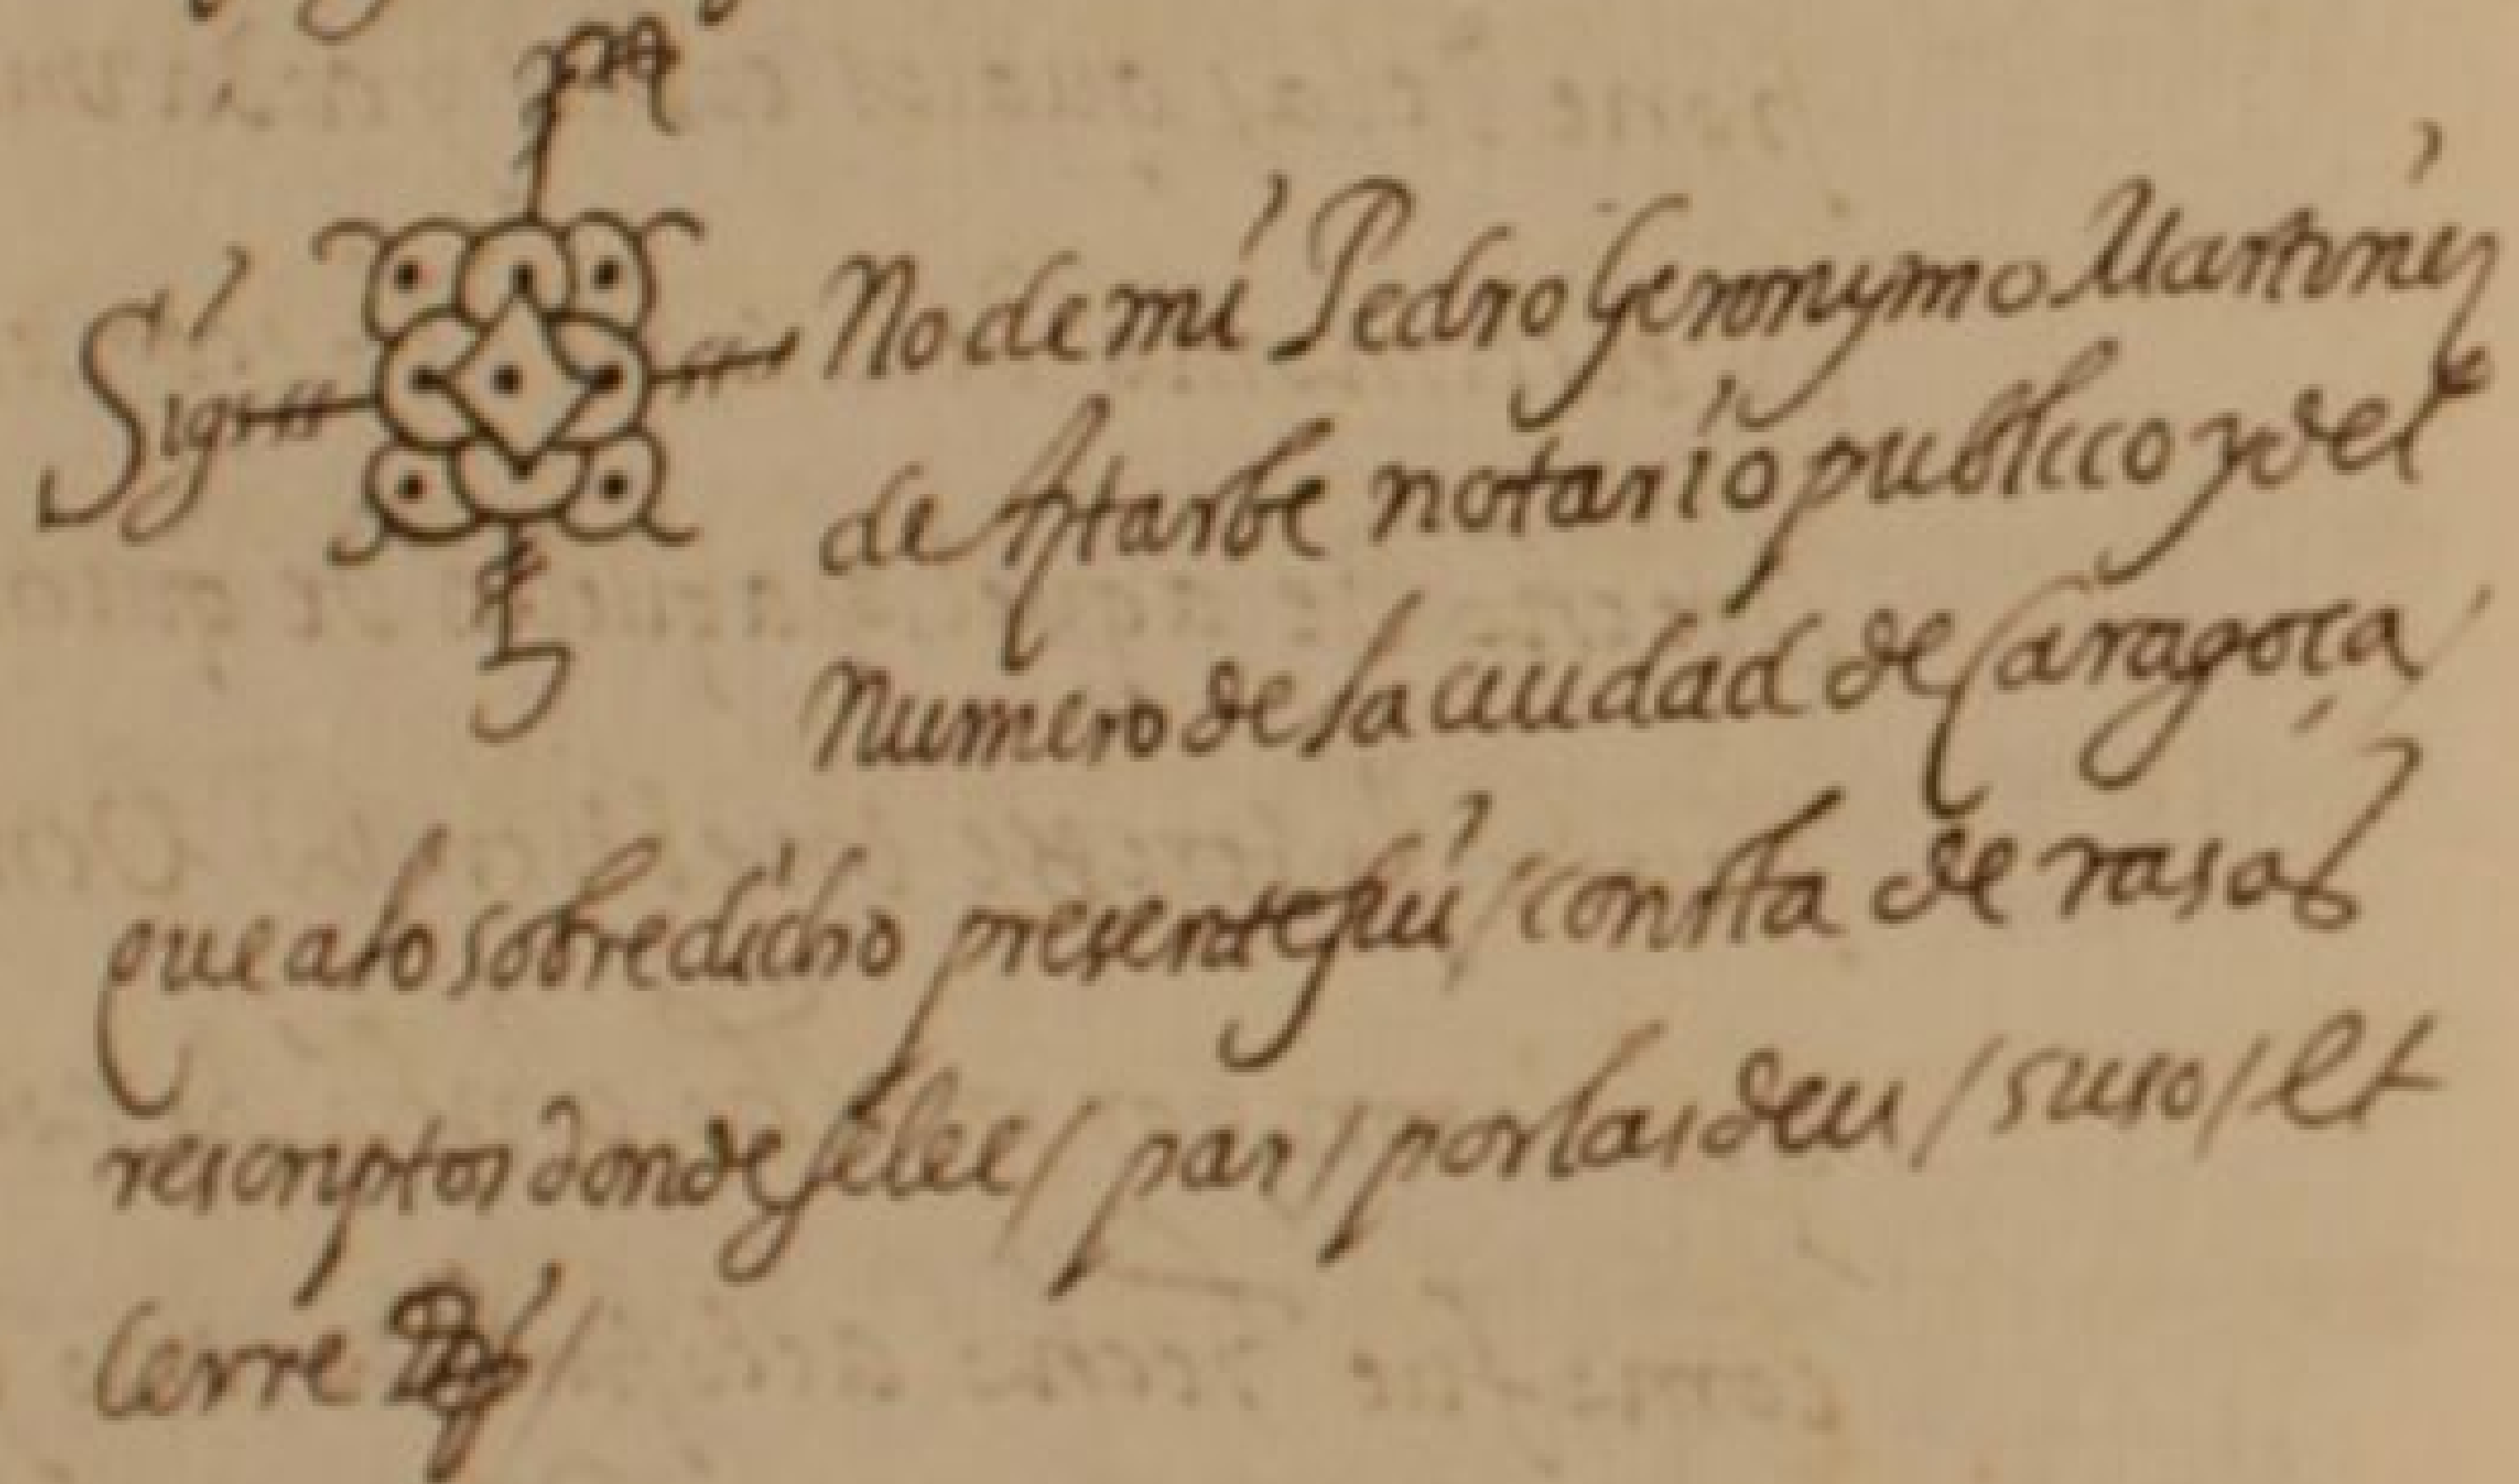 Sig No de mi Pedro Geronymo Martinez
de Aftarbe notario publico y del
Numero de la ciudad de Caragoça
que a lo sobre dicho presente fui / consta de rasos
rescriptos donde se lee / par / por las deu / suso / et
Cerre